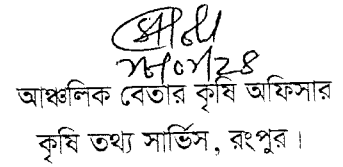 আঞ্চলিক বেতার কৃষি অফিসার
কৃষি তথ্য সার্ভিস, রংপুর।